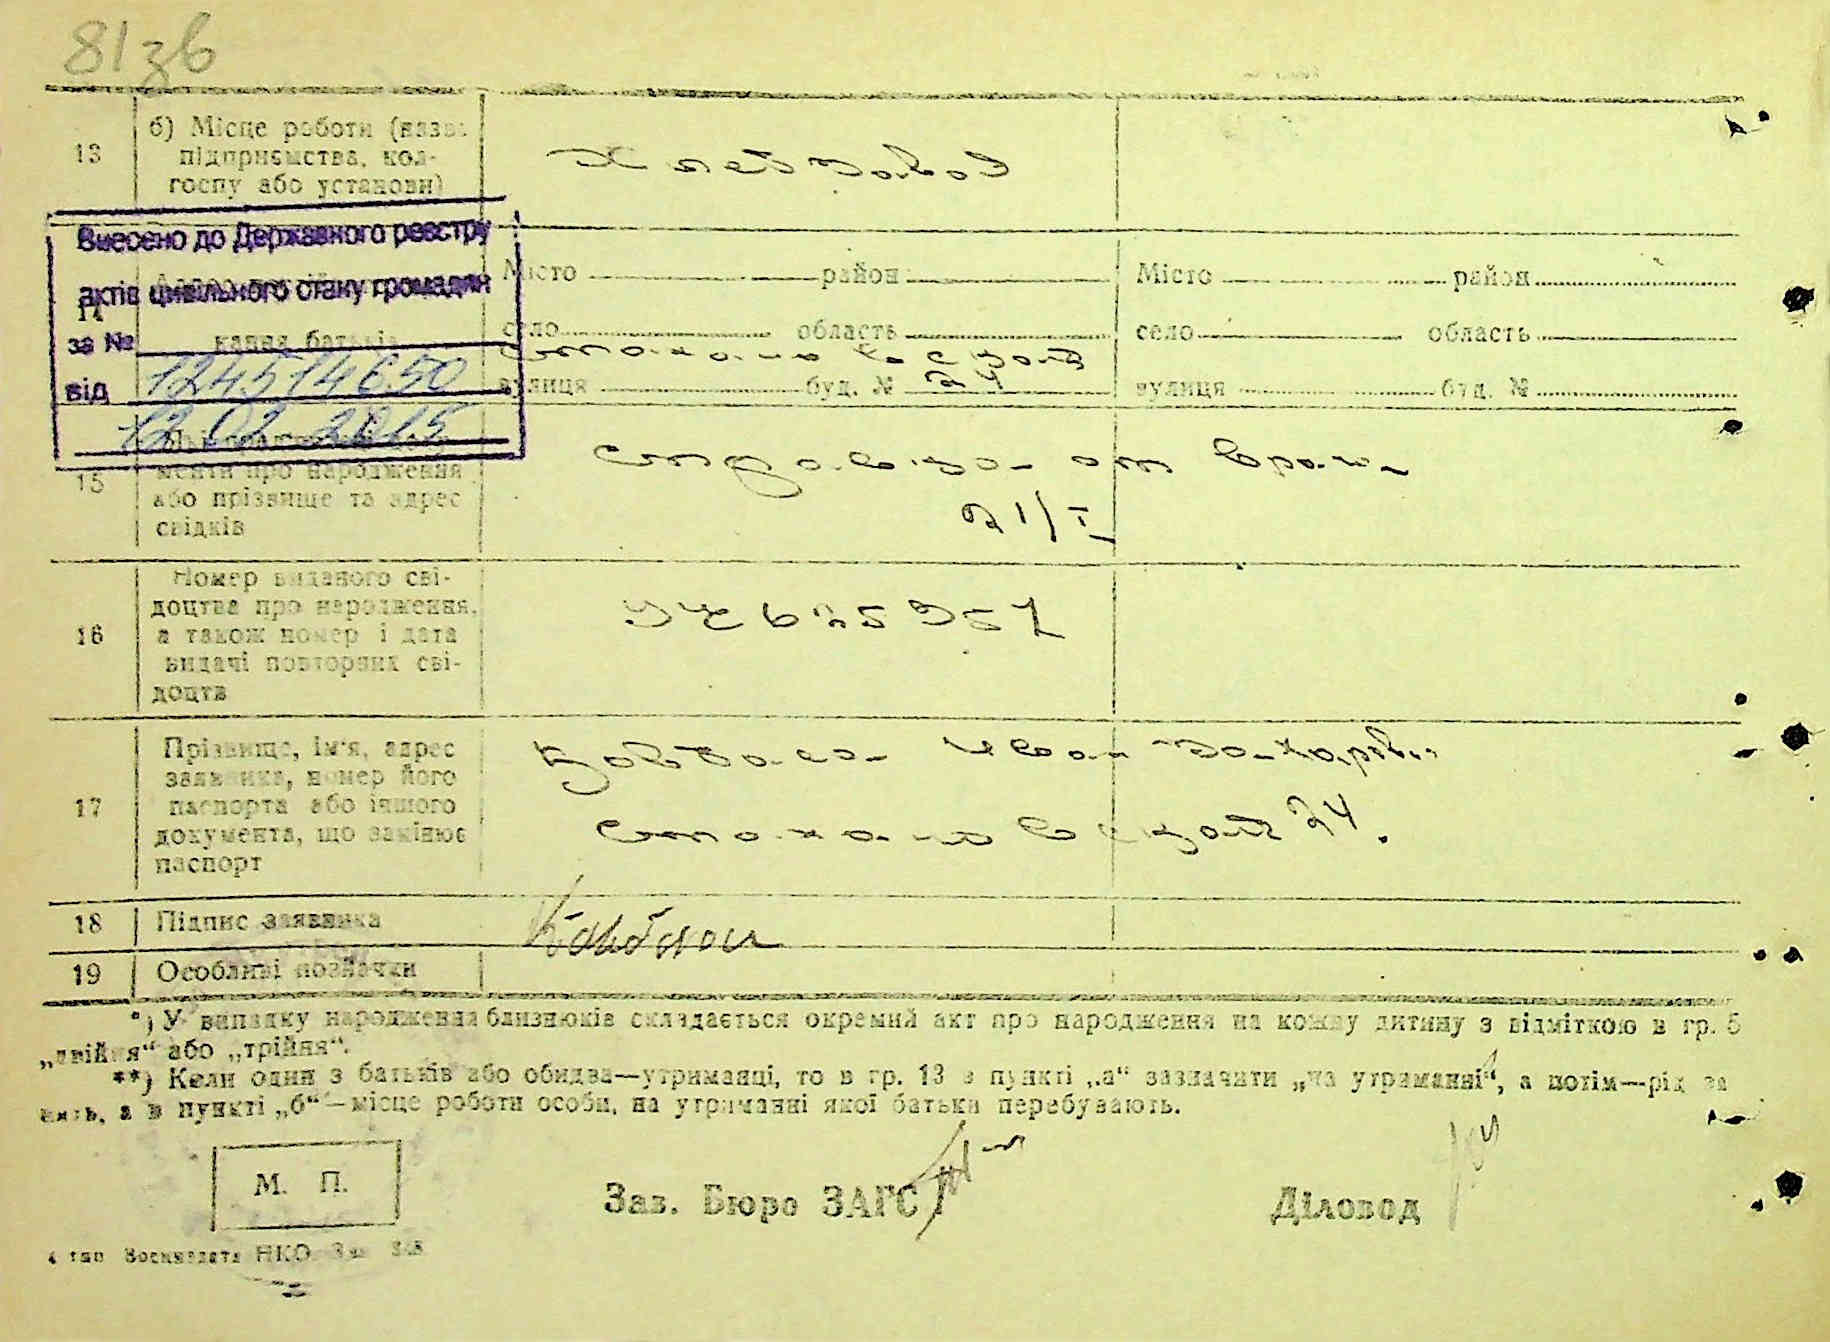 81зв
13
б) Місце роботи (назва
підприємства, кол-
госпу або установи)
Хлебзавод
Внесено до Державного реєстру
актів цивільного стану громадян
за №
від
124514650
12 02 2015
кання батьків
Місто район
село область
вулиця буд. № 24
Місто район
село область
вулиця буд. №
15
менти про народження
або прізвище та адрес
свідків
справка от врача
21/I
16
Номер виданого сві-
доцтва про народження,
а також номер і дата
видачі повторних сві-
доцтв
17
Прізвище, ім'я, адрес
заявника, номер його
паспорта або іншого
документа, що замінює
паспорт
Иван Захаров
24.
18
Підпис заявника
19
Особливі позначки
*) У випадку народження близнюків складається окремий акт про народження на кожну дитину з відміткою в гр. 5
„двійня“ або „трійня“.
**) Коли один з батьків або обидва—утриманці, то в гр. 13 в пункті „а“ зазначити „на утриманні“, а потім—рід за
нять, а в пункті „б“—місце роботи особи, на утриманні якої батьки перебувають.
М. П.
Зав. Бюро ЗАГС
Діловод
4 тип Воениздата НКО Зак